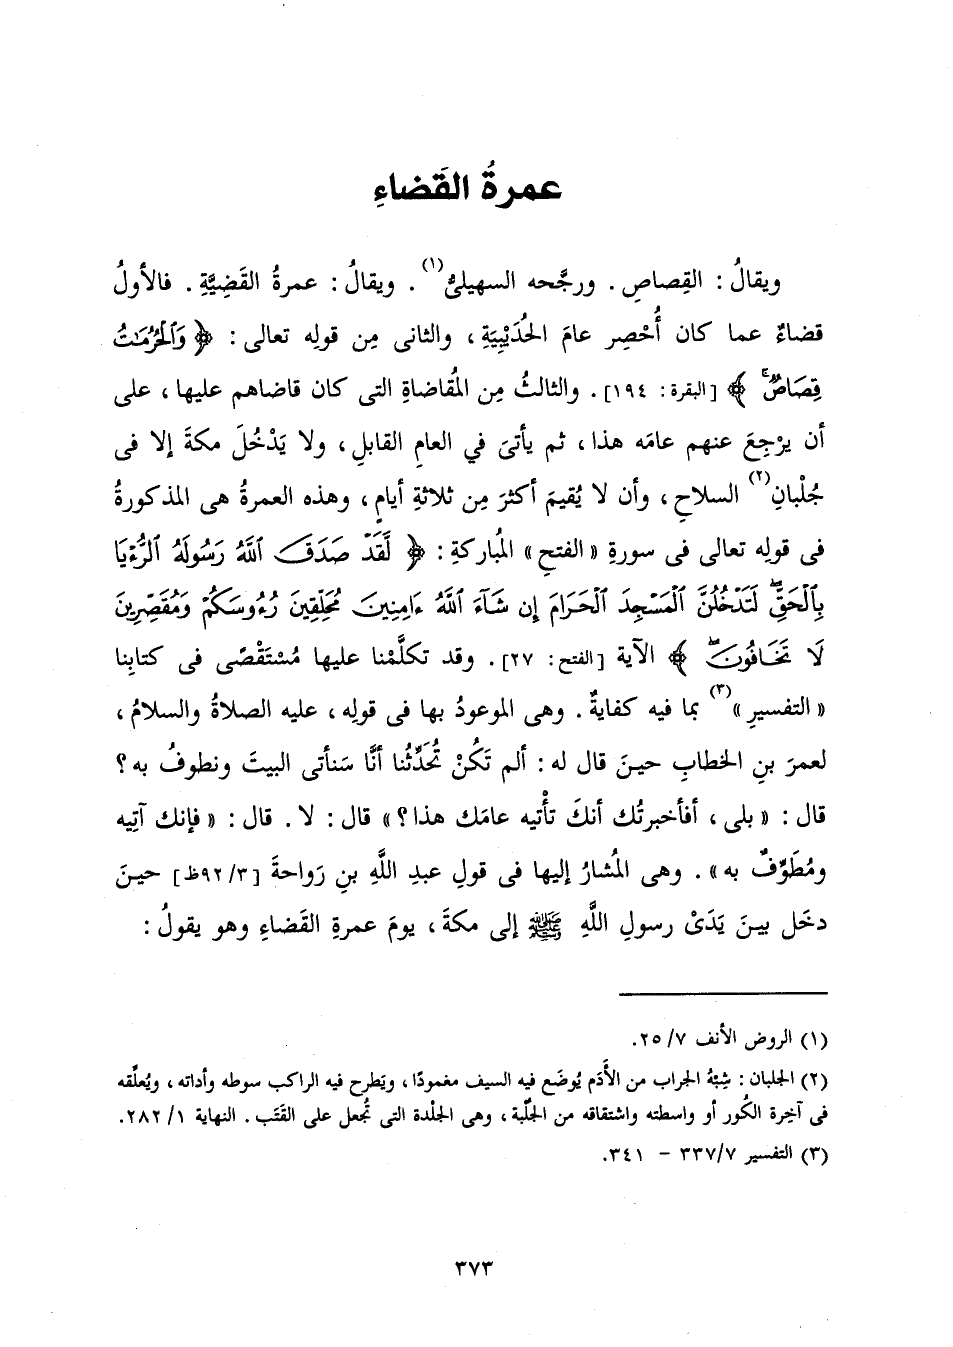 عمرةُ القَضاءِ
ويقالُ : القِصاصِ . ورجَّحه السهيليُّ(١) . ويقالُ : عمرةُ القَضِيَّةِ . فالأولُ
قضاءٌ عما كان أُحْصِر عامَ الحُدَيْبِيَةِ ، والثانى مِن قولِه تعالى : ﴿ وَٱلْحُرُمَٰتُ
قِصَاصٌۚ ﴾ [البقرة: ١٩٤] . والثالثُ مِن المُقاضاةِ التى كان قاضاهم عليها ، على
أن يرْجِعَ عنهم عامَه هذا ، ثم يأتىَ في العامِ القابلِ ، ولا يَدْخُلَ مكةَ إلا فى
جُلْبانِ(٢) السلاحِ ، وأن لا يُقيمَ أكثرَ مِن ثلاثةِ أيامٍ ، وهذه العمرةُ هى المذكورةُ
فى قولِه تعالى فى سورةِ « الفتحِ » المُباركةِ : ﴿ لَّقَدْ صَدَقَ ٱللَّهُ رَسُولَهُ ٱلرُّءْيَا
بِٱلْحَقِّۖ لَتَدْخُلُنَّ ٱلْمَسْجِدَ ٱلْحَرَامَ إِن شَآءَ ٱللَّهُ ءَامِنِينَ مُحَلِّقِينَ رُءُوسَكُمْ وَمُقَصِّرِينَ
لَا تَخَافُونَۖ ﴾ الآية [الفتح: ٢٧] . وقد تكلَّمْنا عليها مُسْتَقْصًى فى كتابِنا
« التفسيرِ »(٣) بما فيه كفايةٌ . وهى الموعودُ بها فى قولِه ، عليه الصلاةُ والسلامُ ،
لعمرَ بنِ الخطابِ حينَ قال له : ألم تَكُنْ تُحَدِّثُنا أنَّا سَنأتى البيتَ ونطوفُ به ؟
قال : « بلى ، أفأخبرتُك أنكَ تأْتيه عامَك هذا ؟ » قال : لا . قال : « فإنك آتِيه
ومُطَوِّفٌ به » . وهى المُشارُ إليها فى قولِ عبدِ اللَّهِ بنِ رَواحةَ [٩٢/٣ظ] حينَ
دخَل بينَ يَدَىْ رسولِ اللَّهِ ﷺ إلى مكةَ ، يومَ عمرةِ القَضاءِ وهو يقولُ :
(١) الروض الأنف ٢٥/٧.
(٢) الجلبان : شِبْهُ الجراب من الأَدَم يُوضَع فيه السيف مغمودًا ، ويَطرح فيه الراكب سوطه وأداته ، ويُعلِّقه
فى آخِرة الكُور أو واسطته واشتقاقه من الجُلْبة ، وهى الجِلْدة التى تُجعل على القَتَب . النهاية ٢٨٢/١.
(٣) التفسير ٣٣٧/٧ - ٣٤١.
٣٧٣